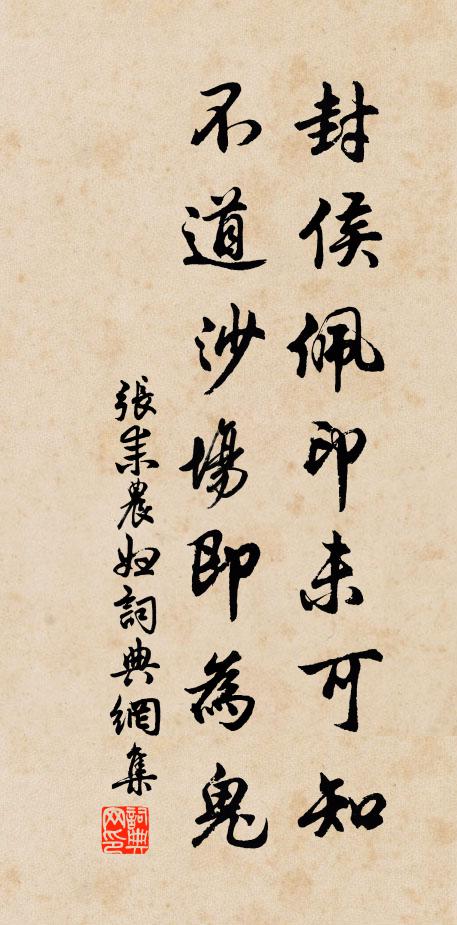 封侯佩印未可知
不道沙場即為鬼
張耒農婦詞典網集
詞典網印